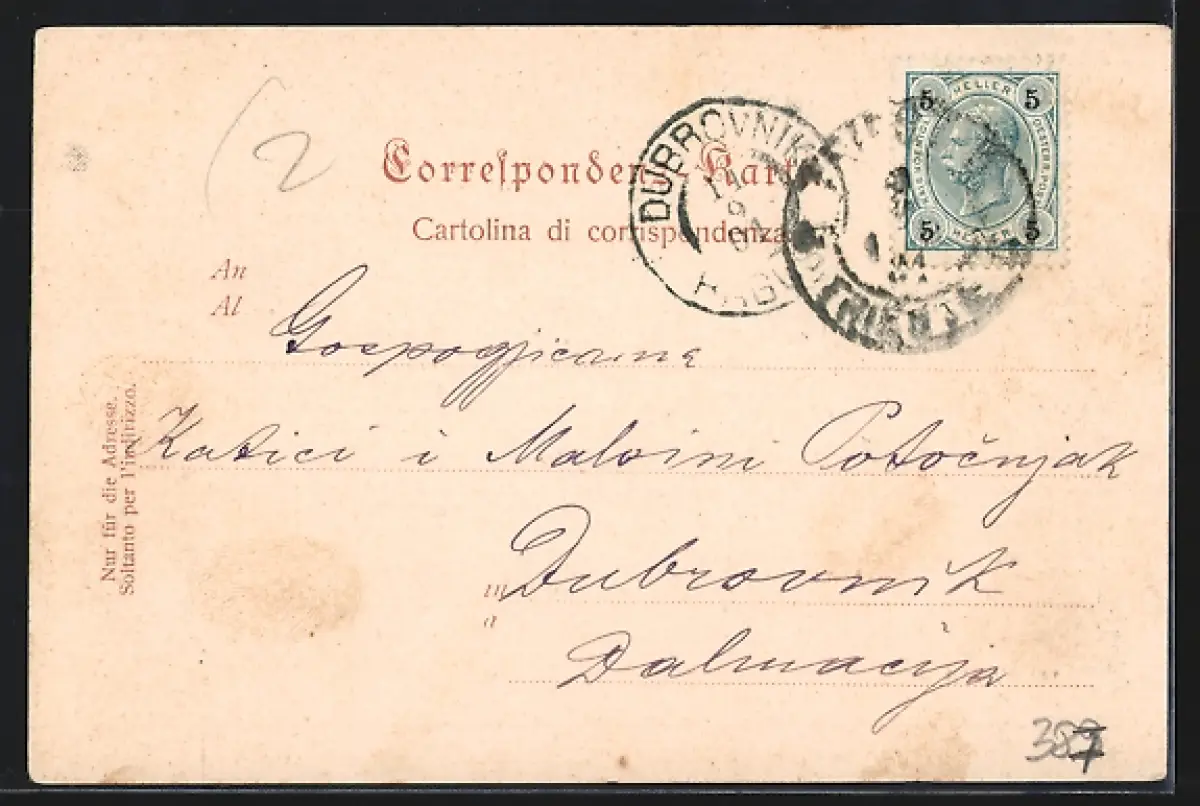 2
5 HELLER 5
5 HELLER 5
Correspondenz-Karte
DUBROVNIK
Cartolina di corrispondenza
An
Al
Gospogjicama
Katici i Malvini Potočnjak
in Dubrovnik
a
Dalmacija
Nur für die Adresse.
Soltanto per l'indirizzo.
387